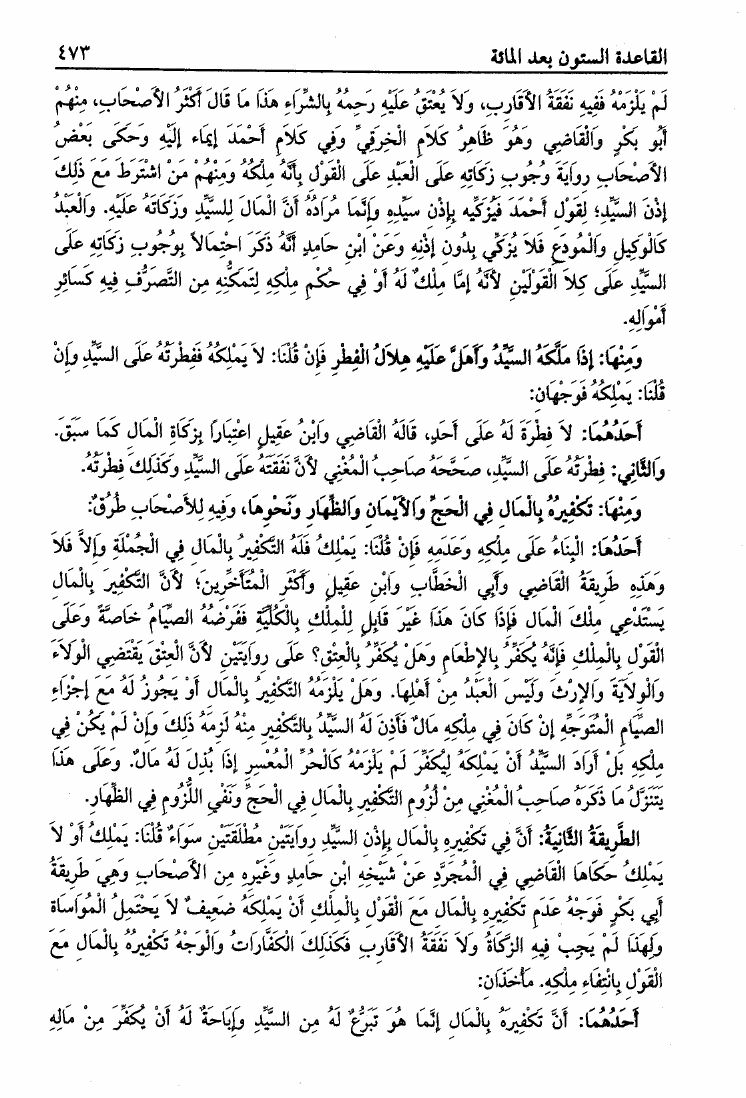 القاعدة الستون بعد المائة ٤٧٣
لَمْ يَلْزَمْهُ فَفِيهِ نَفَقَةُ الأَقَارِبِ، وَلاَ يُعْتَقُ عَلَيْهِ رَحِمُهُ بِالشِّرَاءِ هَذَا مَا قَالَ أَكْثَرُ الأَصْحَابِ، مِنْهُمْ
أَبُو بَكْرٍ وَالْقَاضِي وَهُوَ ظَاهِرُ كَلاَمِ الْخِرَقِيِّ وَفِي كَلاَمِ أَحْمَدَ إيمَاء إلَيْهِ وَحَكَى بَعْضُ
الأَصْحَابِ رِوَايَةَ وُجُوبِ زَكَاتِهِ عَلَى الْعَبْدِ عَلَى الْقَوْلِ بِأَنَّهُ مِلْكُهُ وَمِنْهُمْ مَنْ اشْتَرَطَ مَعَ ذَلِكَ
إذْنَ السَّيِّدِ؛ لِقَوْلِ أَحْمَدَ فَيُزَكِّيهِ بِإِذْنِ سَيِّدِهِ وَإِنَّمَا مُرَادُهُ أَنَّ الْمَالَ لِلسَّيِّدِ وَزَكَاتَهُ عَلَيْهِ. وَالْعَبْدُ
كَالْوَكِيلِ وَالْمُودَعِ فَلاَ يُزَكِّي بِدُونِ إذْنِهِ وَعَنْ ابْنِ حَامِدٍ أَنَّهُ ذَكَرَ احْتِمَالاً بِوُجُوبِ زَكَاتِهِ عَلَى
السَّيِّدِ عَلَى كِلاَ الْقَوْلَيْنِ لأَنَّهُ إمَّا مِلْكٌ لَهُ أَوْ فِي حُكْمِ مِلْكِهِ لِتَمَكُّنِهِ مِن التَّصَرُّفِ فِيهِ كَسَائِرِ
أَمْوَالِهِ.
وَمِنْهَا: إذَا مَلَّكَهُ السَّيِّدُ وَأَهَلَّ عَلَيْهِ هِلاَلُ الْفِطْرِ فَإِنْ قُلْنَا: لاَ يَمْلِكُهُ فَفِطْرَتُهُ عَلَى السَّيِّدِ وَإِنْ
قُلْنَا: يَمْلِكُهُ فَوَجْهَانِ:
أَحَدُهُمَا: لاَ فِطْرَةَ لَهُ عَلَى أَحَدٍ، قَالَهُ الْقَاضِي وَابْنُ عَقِيلٍ اعْتِبَاراً بِزَكَاةِ الْمَالِ كَمَا سَبَقَ.
وَالثَّانِي: فِطْرَتُهُ عَلَى السَّيِّدِ، صَحَّحَهُ صَاحِبُ الْمُغْنِي لأَنَّ نَفَقَتَهُ عَلَى السَّيِّدِ وَكَذَلِكَ فِطْرَتُهُ.
وَمِنْهَا: تَكْفِيرُهُ بِالْمَالِ فِي الْحَجِّ وَالأَيْمَانِ وَالظِّهَارِ وَنَحْوِهَا، وَفِيهِ لِلأَصْحَابِ طُرُقٌ:
أَحَدُهَا: الْبِنَاءُ عَلَى مِلْكِهِ وَعَدَمِهِ فَإِنْ قُلْنَا: يَمْلِكُ فَلَهُ التَّكْفِيرُ بِالْمَالِ فِي الْجُمْلَةِ وَإِلاَّ فَلاَ
وَهَذِهِ طَرِيقَةُ الْقَاضِي وَأَبِي الْخَطَّابِ وَابْنِ عَقِيلٍ وَأَكْثَرِ الْمُتَأَخِّرِينَ؛ لأَنَّ التَّكْفِيرَ بِالْمَالِ
يَسْتَدْعِي مِلْكَ الْمَالِ فَإِذَا كَانَ هَذَا غَيْرَ قَابِلٍ لِلْمِلْكِ بِالْكُلِّيَّةِ فَفَرْضُهُ الصِّيَامُ خَاصَّةً وَعَلَى
الْقَوْلِ بِالْمِلْكِ فَإِنَّهُ يُكَفِّرُ بِالإِطْعَامِ وَهَلْ يُكَفِّرُ بِالْعِتْقِ؟ عَلَى رِوَايَتَيْنِ لأَنَّ الْعِتْقَ يَقْتَضِي الْوَلاَءَ
وَالْوِلاَيَةَ وَالإِرْثَ وَلَيْسَ الْعَبْدُ مِنْ أَهْلِهَا. وَهَلْ يَلْزَمُهُ التَّكْفِيرُ بِالْمَالِ أَوْ يَجُوزُ لَهُ مَعَ إجْزَاءِ
الصِّيَامِ الْمُتَوَجِّهِ إنْ كَانَ فِي مِلْكِهِ مَالٌ فَأَذِنَ لَهُ السَّيِّدُ بِالتَّكْفِيرِ مِنْهُ لَزِمَهُ ذَلِكَ وَإِنْ لَمْ يَكُنْ فِي
مِلْكِهِ بَلْ أَرَادَ السَّيِّدُ أَنْ يَمْلِكَهُ لِيُكَفِّرَ لَمْ يَلْزَمْهُ كَالْحُرِّ الْمُعْسِرِ إذَا بُذِلَ لَهُ مَالٌ. وَعَلَى هَذَا
يَتَنَزَّلُ مَا ذَكَرَهُ صَاحِبُ الْمُغْنِي مِنْ لُزُومِ التَّكْفِيرِ بِالْمَالِ فِي الْحَجِّ وَنَفْيِ اللُّزُومِ فِي الظِّهَارِ.
الطَّرِيقَةُ الثَّانِيَةُ: أَنَّ فِي تَكْفِيرِهِ بِالْمَالِ بِإِذْنِ السَّيِّدِ رِوَايَتَيْنِ مُطْلَقَتَيْنِ سَوَاءٌ قُلْنَا: يَمْلِكُ أَوْ لاَ
يَمْلِكُ حَكَاهَا الْقَاضِي فِي الْمُجَرَّدِ عَنْ شَيْخِهِ ابْنِ حَامِدٍ وَغَيْرِهِ مِن الأَصْحَابِ وَهِيَ طَرِيقَةُ
أَبِي بَكْرٍ فَوَجْهُ عَدَمِ تَكْفِيرِهِ بِالْمَالِ مَعَ الْقَوْلِ بِالْمِلْكِ أَنْ يَمْلِكَهُ ضَعِيفٌ لاَ يَحْتَمِلُ الْمُوَاسَاةَ
وَلِهَذَا لَمْ يَجِبْ فِيهِ الزَّكَاةُ وَلاَ نَفَقَةُ الأَقَارِبِ فَكَذَلِكَ الْكَفَّارَاتُ وَالْوَجْهُ تَكْفِيرُهُ بِالْمَالِ مَعَ
الْقَوْلِ بِانْتِفَاءِ مِلْكِهِ. مَأْخَذَانِ:
أَحَدُهُمَا: أَنَّ تَكْفِيرَهُ بِالْمَالِ إنَّمَا هُوَ تَبَرُّعٌ لَهُ مِن السَّيِّدِ وَإِبَاحَةٌ لَهُ أَنْ يُكَفِّرَ مِنْ مَالِهِ